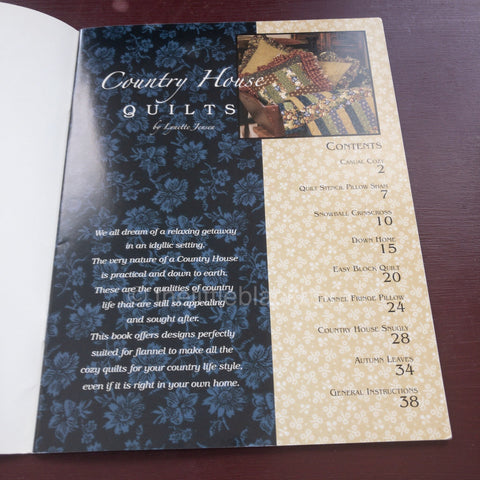 Country House
QUILTS
by Lynette Jensen
We all dream of a relaxing getaway
in an idyllic setting.
The very nature of a Country House
is practical and down to earth.
These are the qualities of country
life that are still so appealing
and sought after.
This book offers designs perfectly
suited for flannel to make all the
cozy quilts for your country life style,
even if it is right in your own home.
CONTENTS
CASUAL COZY
2
QUILT STENCIL PILLOW SHAM
7
SNOWBALL CRISSCROSS
10
DOWN HOME
15
EASY BLOCK QUILT
20
FLANNEL FRINGE PILLOW
24
COUNTRY HOUSE SNUGLY
28
AUTUMN LEAVES
34
GENERAL INSTRUCTIONS
38